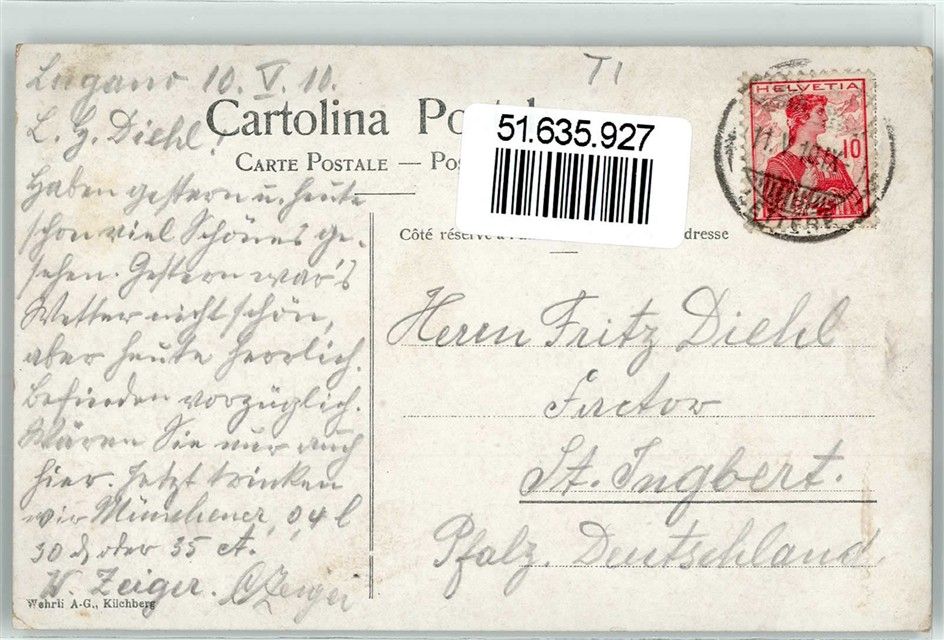 Lugano 10. V. 10.
L. H. Diehl!
Haben gestern u. heute
schon viel Schönes ge-
sehen. Gestern war's
Wetter nicht schön,
aber heute herrlich.
Befinden vorzüglich.
Wären Sie nur auch
hier. Jetzt trinken
wir Münchener, 0,4 l
30 ₰ oder 35 ct.
K. Zeiger. Zeiger
Wehrli A-G., Kilchberg
T1
Cartolina Postal
CARTE POSTALE — Pos
51.635.927
Côté réservé à l'a dresse
HELVETIA
10
11.V.10
Herrn Fritz Diehl
Factor
St. Ingbert.
Pfalz. Deutschland